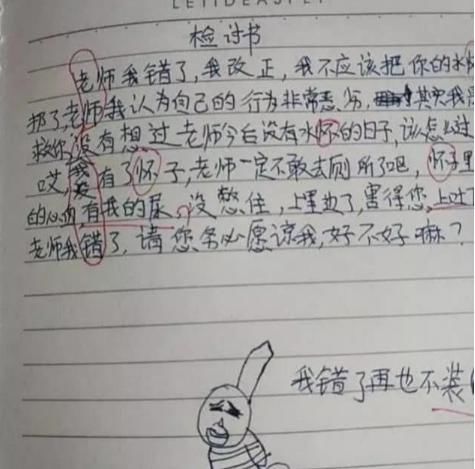 检讨书
老师我错了,我改正,我不应该把你的水怀
扔了,老师我认为自己的行为非常恶劣,其实我
救你没有想过老师今后没有水怀的日子,该怎么过
哎,我没有了怀子,老师一定不敢去厕所了吧,怀子里
的心血有我的尿,没憋住,上里边了,害得您,上吐
老师我错了,请您务必愿谅我,好不好嘛?
我错了再也不装